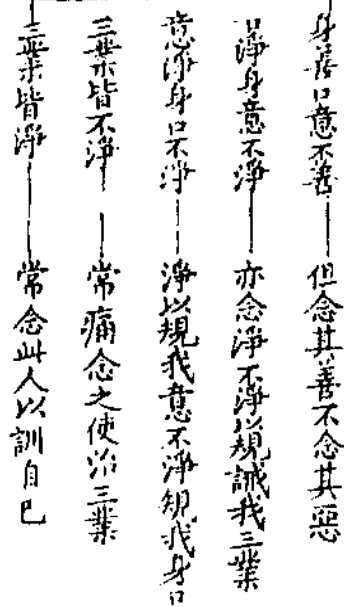 身善口意不善——但念其善不念其惡
口淨身意不淨——亦念淨不淨以規誡我三業
意淨身口不淨——淨以規我意不淨規我身口
三業皆不淨——常痛念之使治三業
三業皆淨——常念此人以訓自己